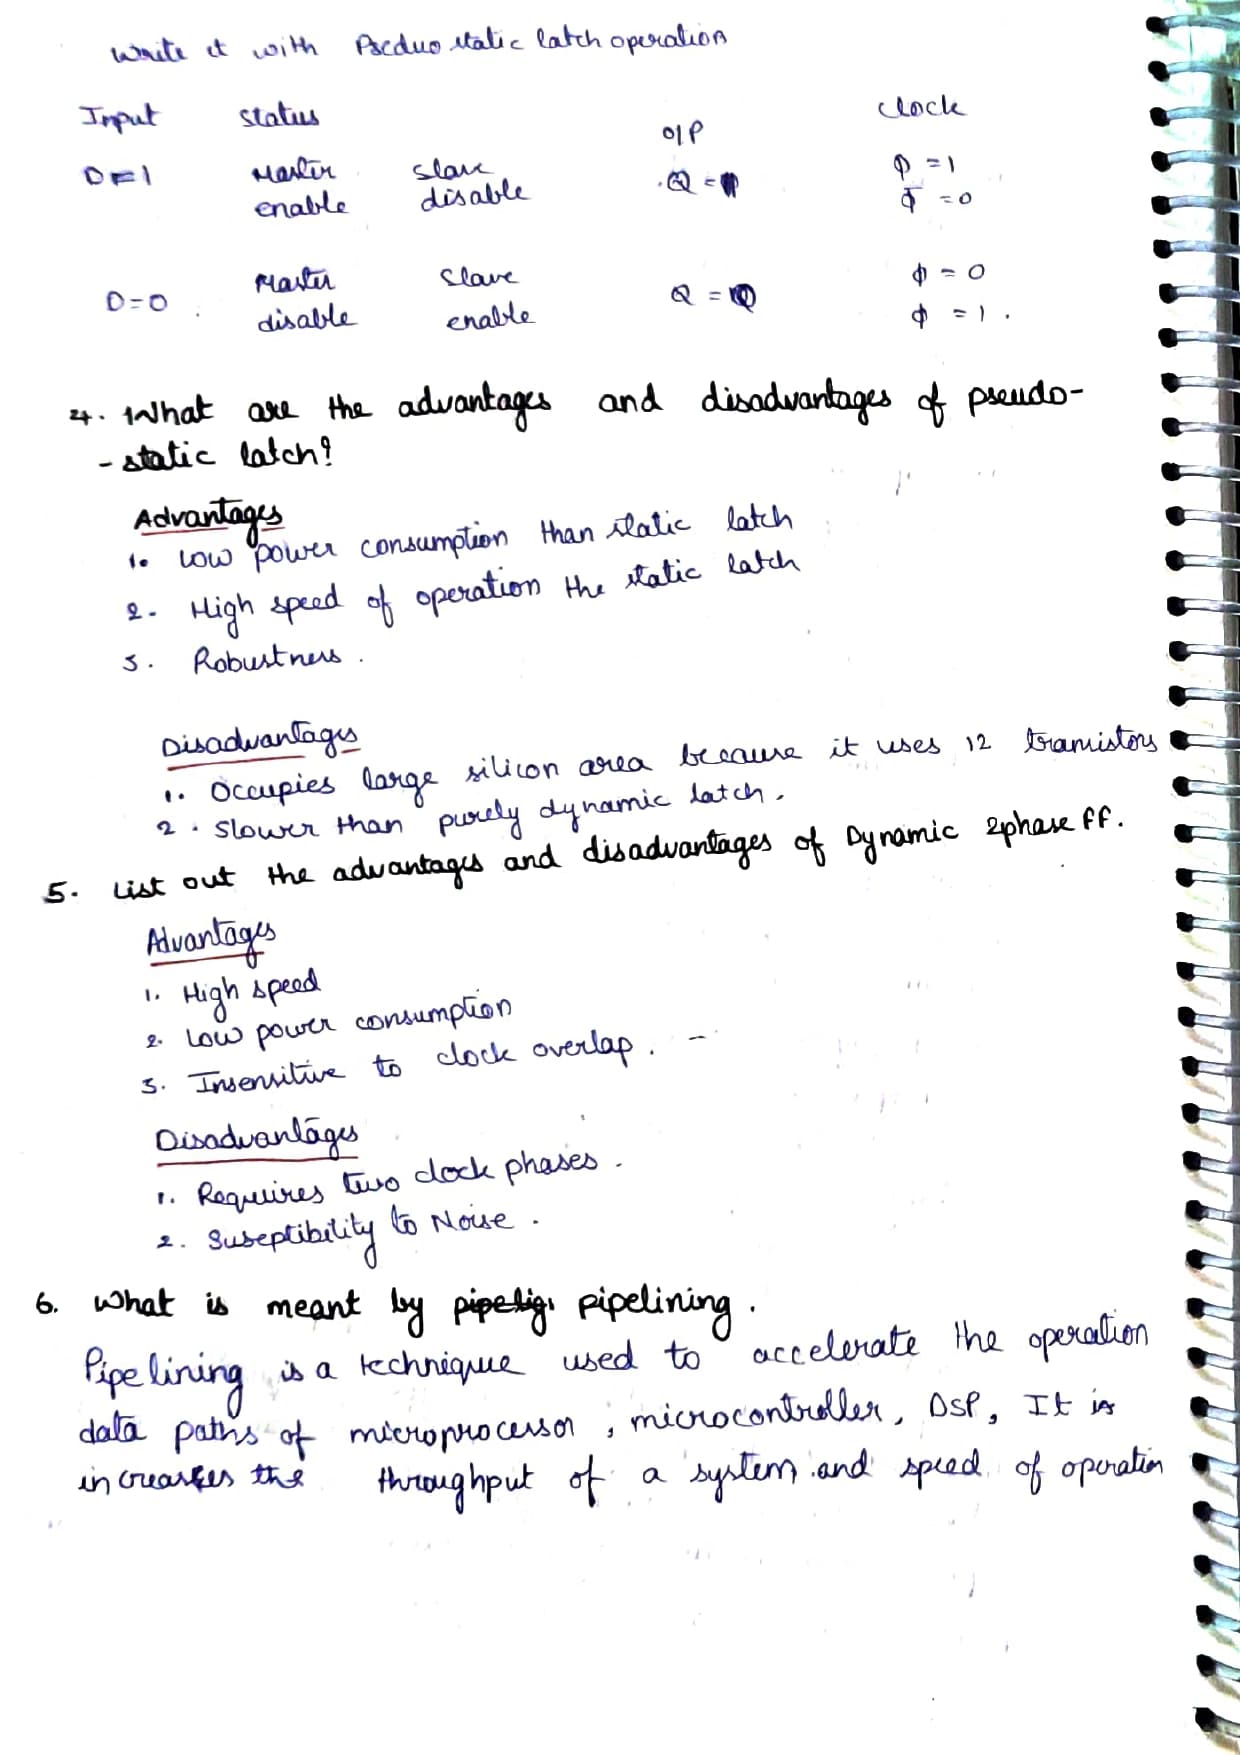 Write it with Pseduo static latch operation
Input status o/p clock
D=1 Master enable slave disable Q = ϕ = 1
ϕ̅ = 0
D=0 Master disable Slave enable Q = ϕ = 0
ϕ = 1.
4. What are the advantages and disadvantages of pseudo-
- static latch?
Advantages
1. Low power consumption than static latch
2. High speed of operation the static latch
3. Robustness.
Disadvantages
1. Occupies large silicon area because it uses 12 transistors
2. Slower than purely dynamic latch.
5. List out the advantages and disadvantages of Dynamic 2phase ff.
Advantages
1. High speed
2. Low power consumption
3. Insensitive to clock overlap. -
Disadvantages
1. Requires two clock phases.
2. Suseptibility to Noise.
6. What is meant by pipelining.
Pipelining is a technique used to accelerate the operation
data paths of microprocessor, microcontroller, DSP, It is
increases the throughput of a system and speed of operation